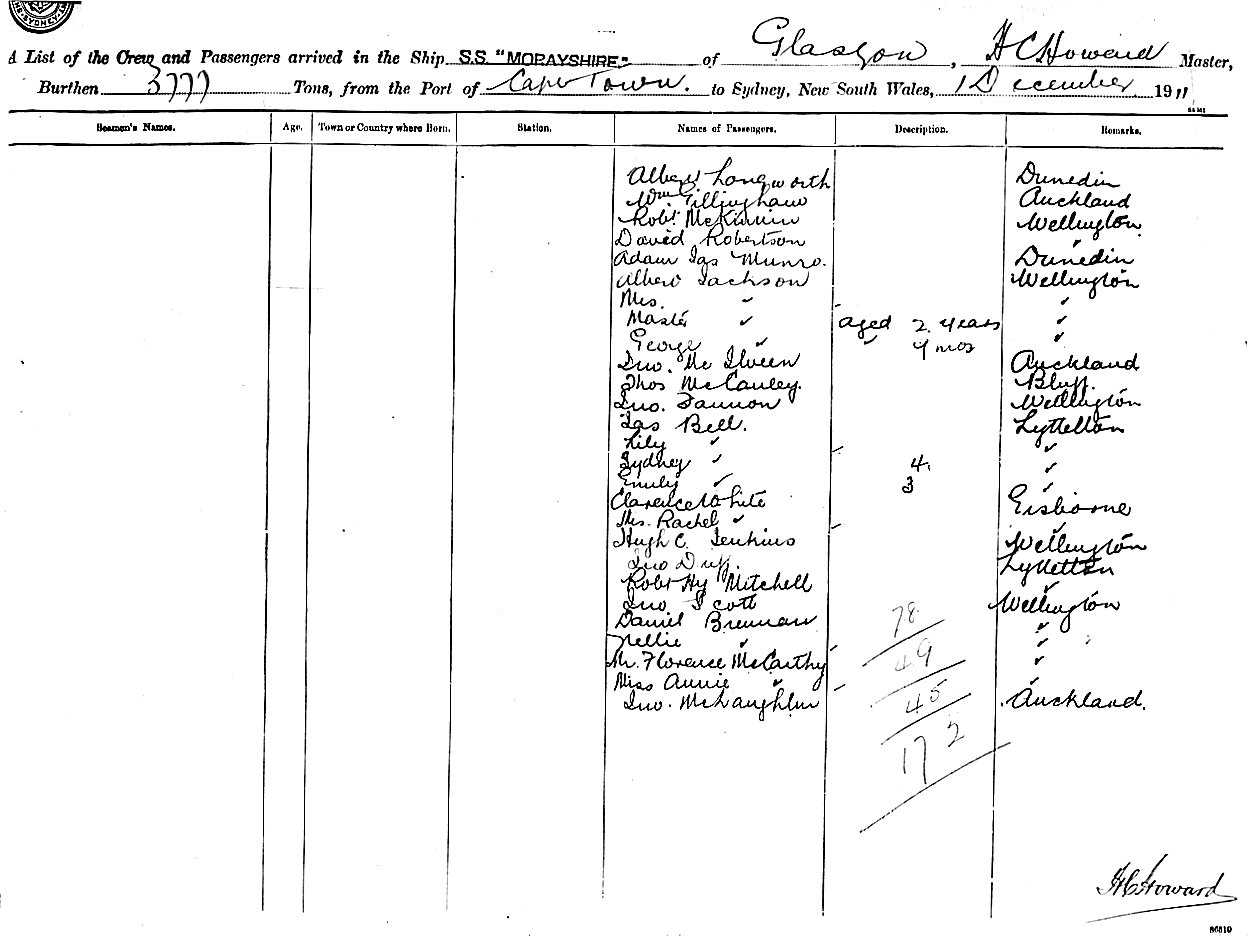 SYDNEY
A List of the Crew and Passengers arrived in the Ship S.S. "MORAYSHIRE" of Glasgow, H C Howard Master,
Burthen 3777 Tons, from the Port of Cape Town. to Sydney, New South Wales, 1 December 1911
Seamen's Names. Age. Town or Country where Born. Station. Names of Passengers. Description. Remarks.
Albert Longworth Dunedin
Wm Gillingham Auckland
Robt McKinnin Wellington
David Robertson "
Adam Jas Munro. Dunedin
Albert Jackson Wellington
Mrs. " "
Master " aged 2 years "
George " " 4 mos "
Jno. Mc Ilveen Auckland
Thos McCauley. Bluff.
Jno. Fannon Wellington
Jas Bell. Lyttelton
Lily " "
Sydney " 4. "
Emily " 3 "
Clarence White Gisborne
Mrs. Rachel " "
Hugh C. Jenkins Wellington
Jno Duff. Lyttelton
Robt Hy Mitchell "
Jno. Scott Wellington
Daniel Brennan 78 "
Nellie " "
Mr. Florence McCarthy 49 "
Miss Annie " "
Jno. McLaughlin 45 Auckland.
172
H C Howard